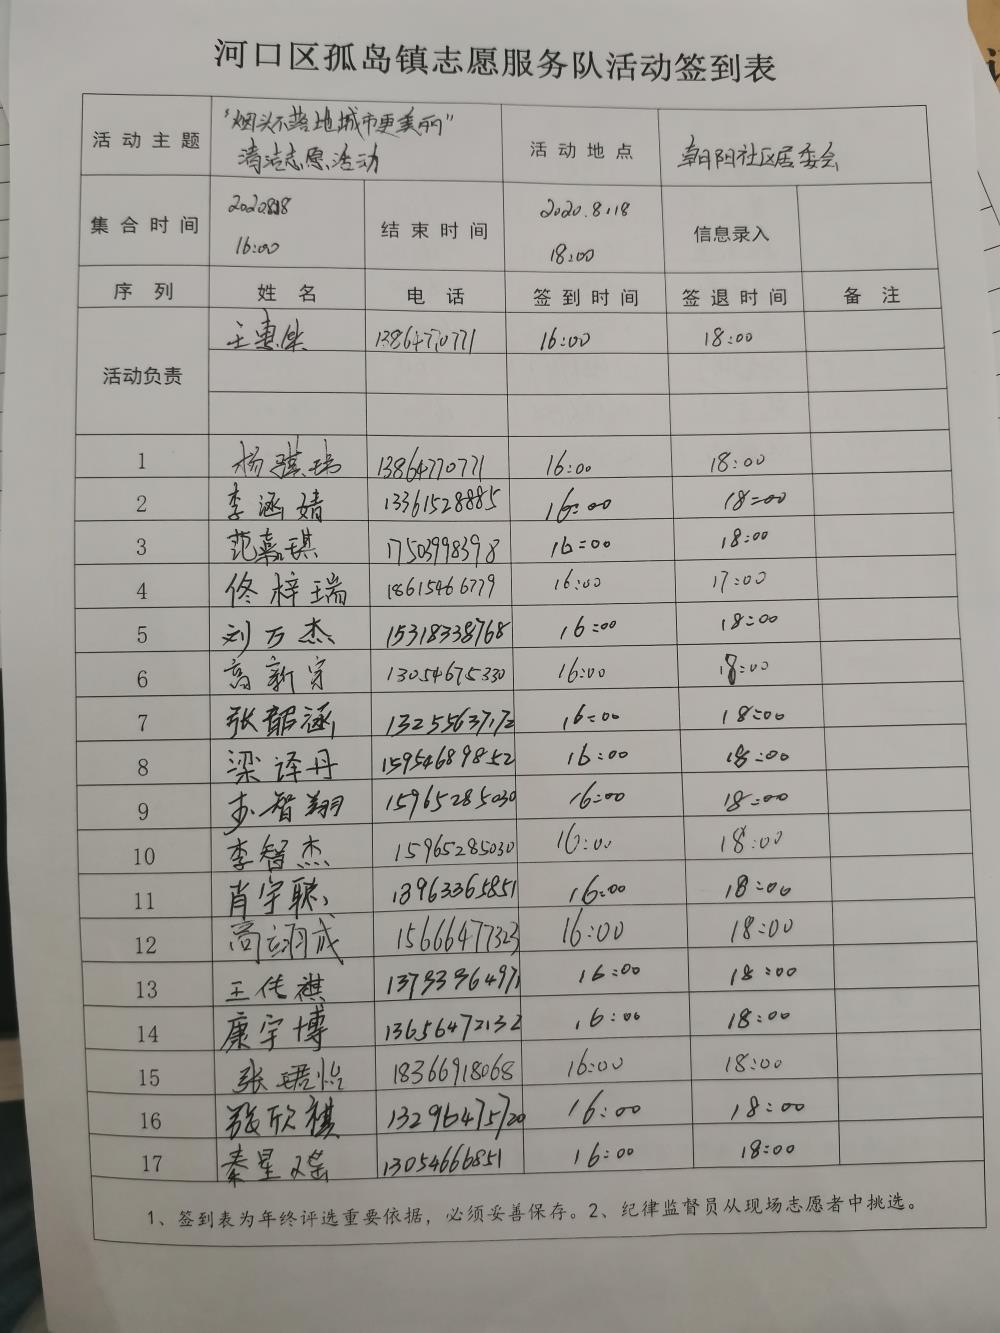 河口区孤岛镇志愿服务队活动签到表
活动主题 "烟头不落地城市更美丽" 清洁志愿活动 活动地点 朝阳社区居委会
集合时间 2020.8.18 16:00 结束时间 2020.8.18 18:00 信息录入
序列 姓名 电话 签到时间 签退时间 备注
活动负责 王惠 13864770771 16:00 18:00
1 杨骐瑞 13864770771 16:00 18:00
2 李涵婧 13361528885 16:00 18:00
3 范嘉琪 17503998398 16:00 18:00
4 佟梓瑞 18615466779 16:00 17:00
5 刘万杰 15318338768 16:00 18:00
6 高新宇 13054675330 16:00 18:00
7 张韶涵 13255637172 16:00 18:00
8 梁译丹 15954689852 16:00 18:00
9 李智翔 15965285030 16:00 18:00
10 李智杰 15965285030 16:00 18:00
11 肖宇聪 18963365851 16:00 18:00
12 高翊成 15666477323 16:00 18:00
13 王传祺 13793364971 16:00 18:00
14 康宇博 13656472132 16:00 18:00
15 张珺怡 18366918068 16:00 18:00
16 张欣祺 13296475720 16:00 18:00
17 秦星瑶 13054666851 16:00 18:00
1、签到表为年终评选重要依据，必须妥善保存。2、纪律监督员从现场志愿者中挑选。